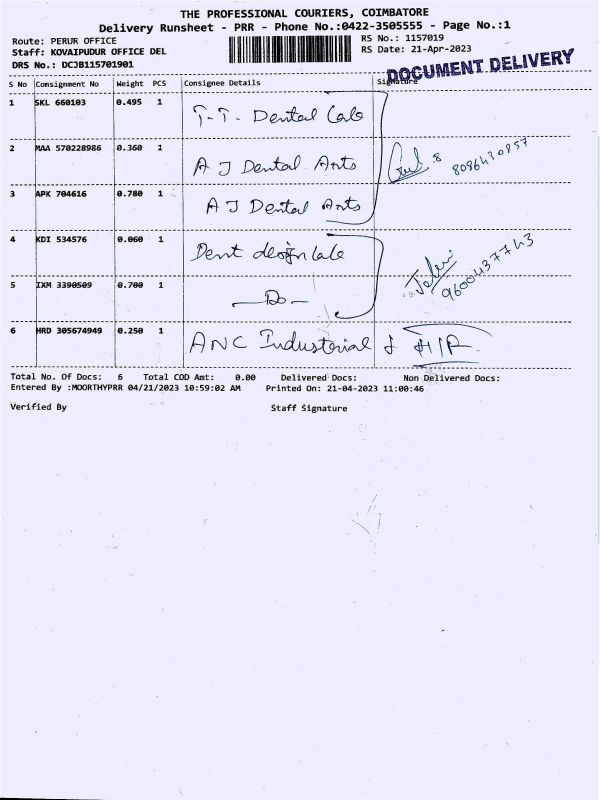 THE PROFESSIONAL COURIERS, COIMBATORE
Delivery Runsheet - PRR - Phone No.:0422-3505555 - Page No.:1
Route: PERUR OFFICE RS No.: 1157019
Staff: KOVAIPUDUR OFFICE DEL RS Date: 21-Apr-2023
DRS No.: DCJB115701901
DOCUMENT DELIVERY
S No Consignment No Weight PCS Consignee Details Signature
1 SKL 660103 0.495 1 T.T. Dental Lab
2 MAA 570228986 0.360 1 A J Dental Arts 8086430957
3 APK 704616 0.780 1 A J Dental Arts
4 KDI 534576 0.060 1 Dent design lab
9600437743
5 IXM 3390509 0.700 1 —Do—
6 HRD 305674949 0.250 1 ANC Industorial
Total No. Of Docs: 6 Total COD Amt: 0.00 Delivered Docs: Non Delivered Docs:
Entered By :MOORTHYPRR 04/21/2023 10:59:02 AM Printed On: 21-04-2023 11:00:46
Verified By Staff Signature